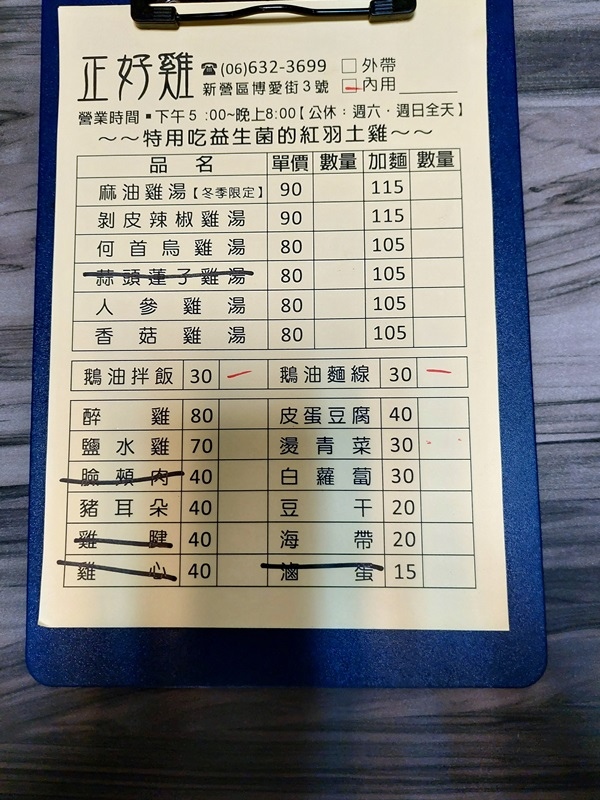 正好雞 ☎(06)632-3699 □外帶
新營區博愛街3號 □內用______
營業時間▪下午5:00~晚上8:00【公休:週六.週日全天】
~~特用吃益生菌的紅羽土雞~~
品名 單價 數量 加麵 數量
麻油雞湯【冬季限定】 90 115
剝皮辣椒雞湯 90 115
何首烏雞湯 80 105
蒜頭蓮子雞湯 80 105
人參雞湯 80 105
香菇雞湯 80 105
鵝油拌飯 30 一 鵝油麵線 30 一
醉雞 80 皮蛋豆腐 40
鹽水雞 70 燙青菜 30
臉頰肉 40 白蘿蔔 30
豬耳朵 40 豆干 20
雞腱 40 海帶 20
雞心 40 滷蛋 15